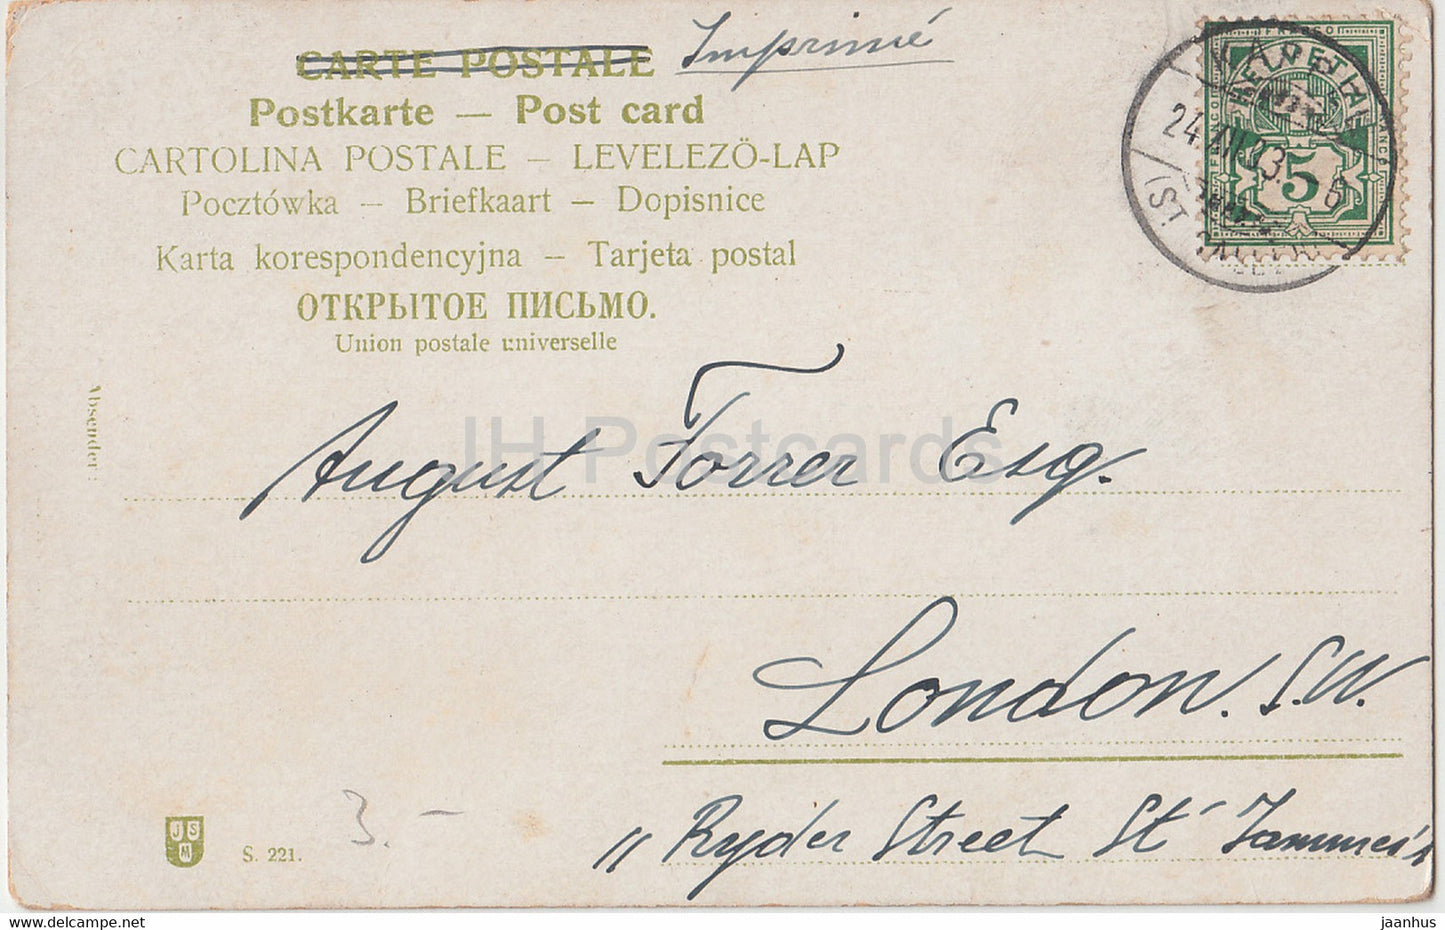 CARTE POSTALE Imprimé
Postkarte — Post card
CARTOLINA POSTALE – LEVELEZÖ-LAP
Pocztówka – Briefkaart – Dopisnice
Karta korespondencyjna – Tarjeta postal
ОТКРЫТОЕ ПИСЬМО.
Union postale universelle
HELVETIA
5
24.XII.03. 6
(ST. GALLEN)
Absender:
JH Postcards
August Forrer Esq.
London. S.W.
11 Ryder Street St James's
3.–
JSM
S. 221.
www.delcampe.net
jaanhus